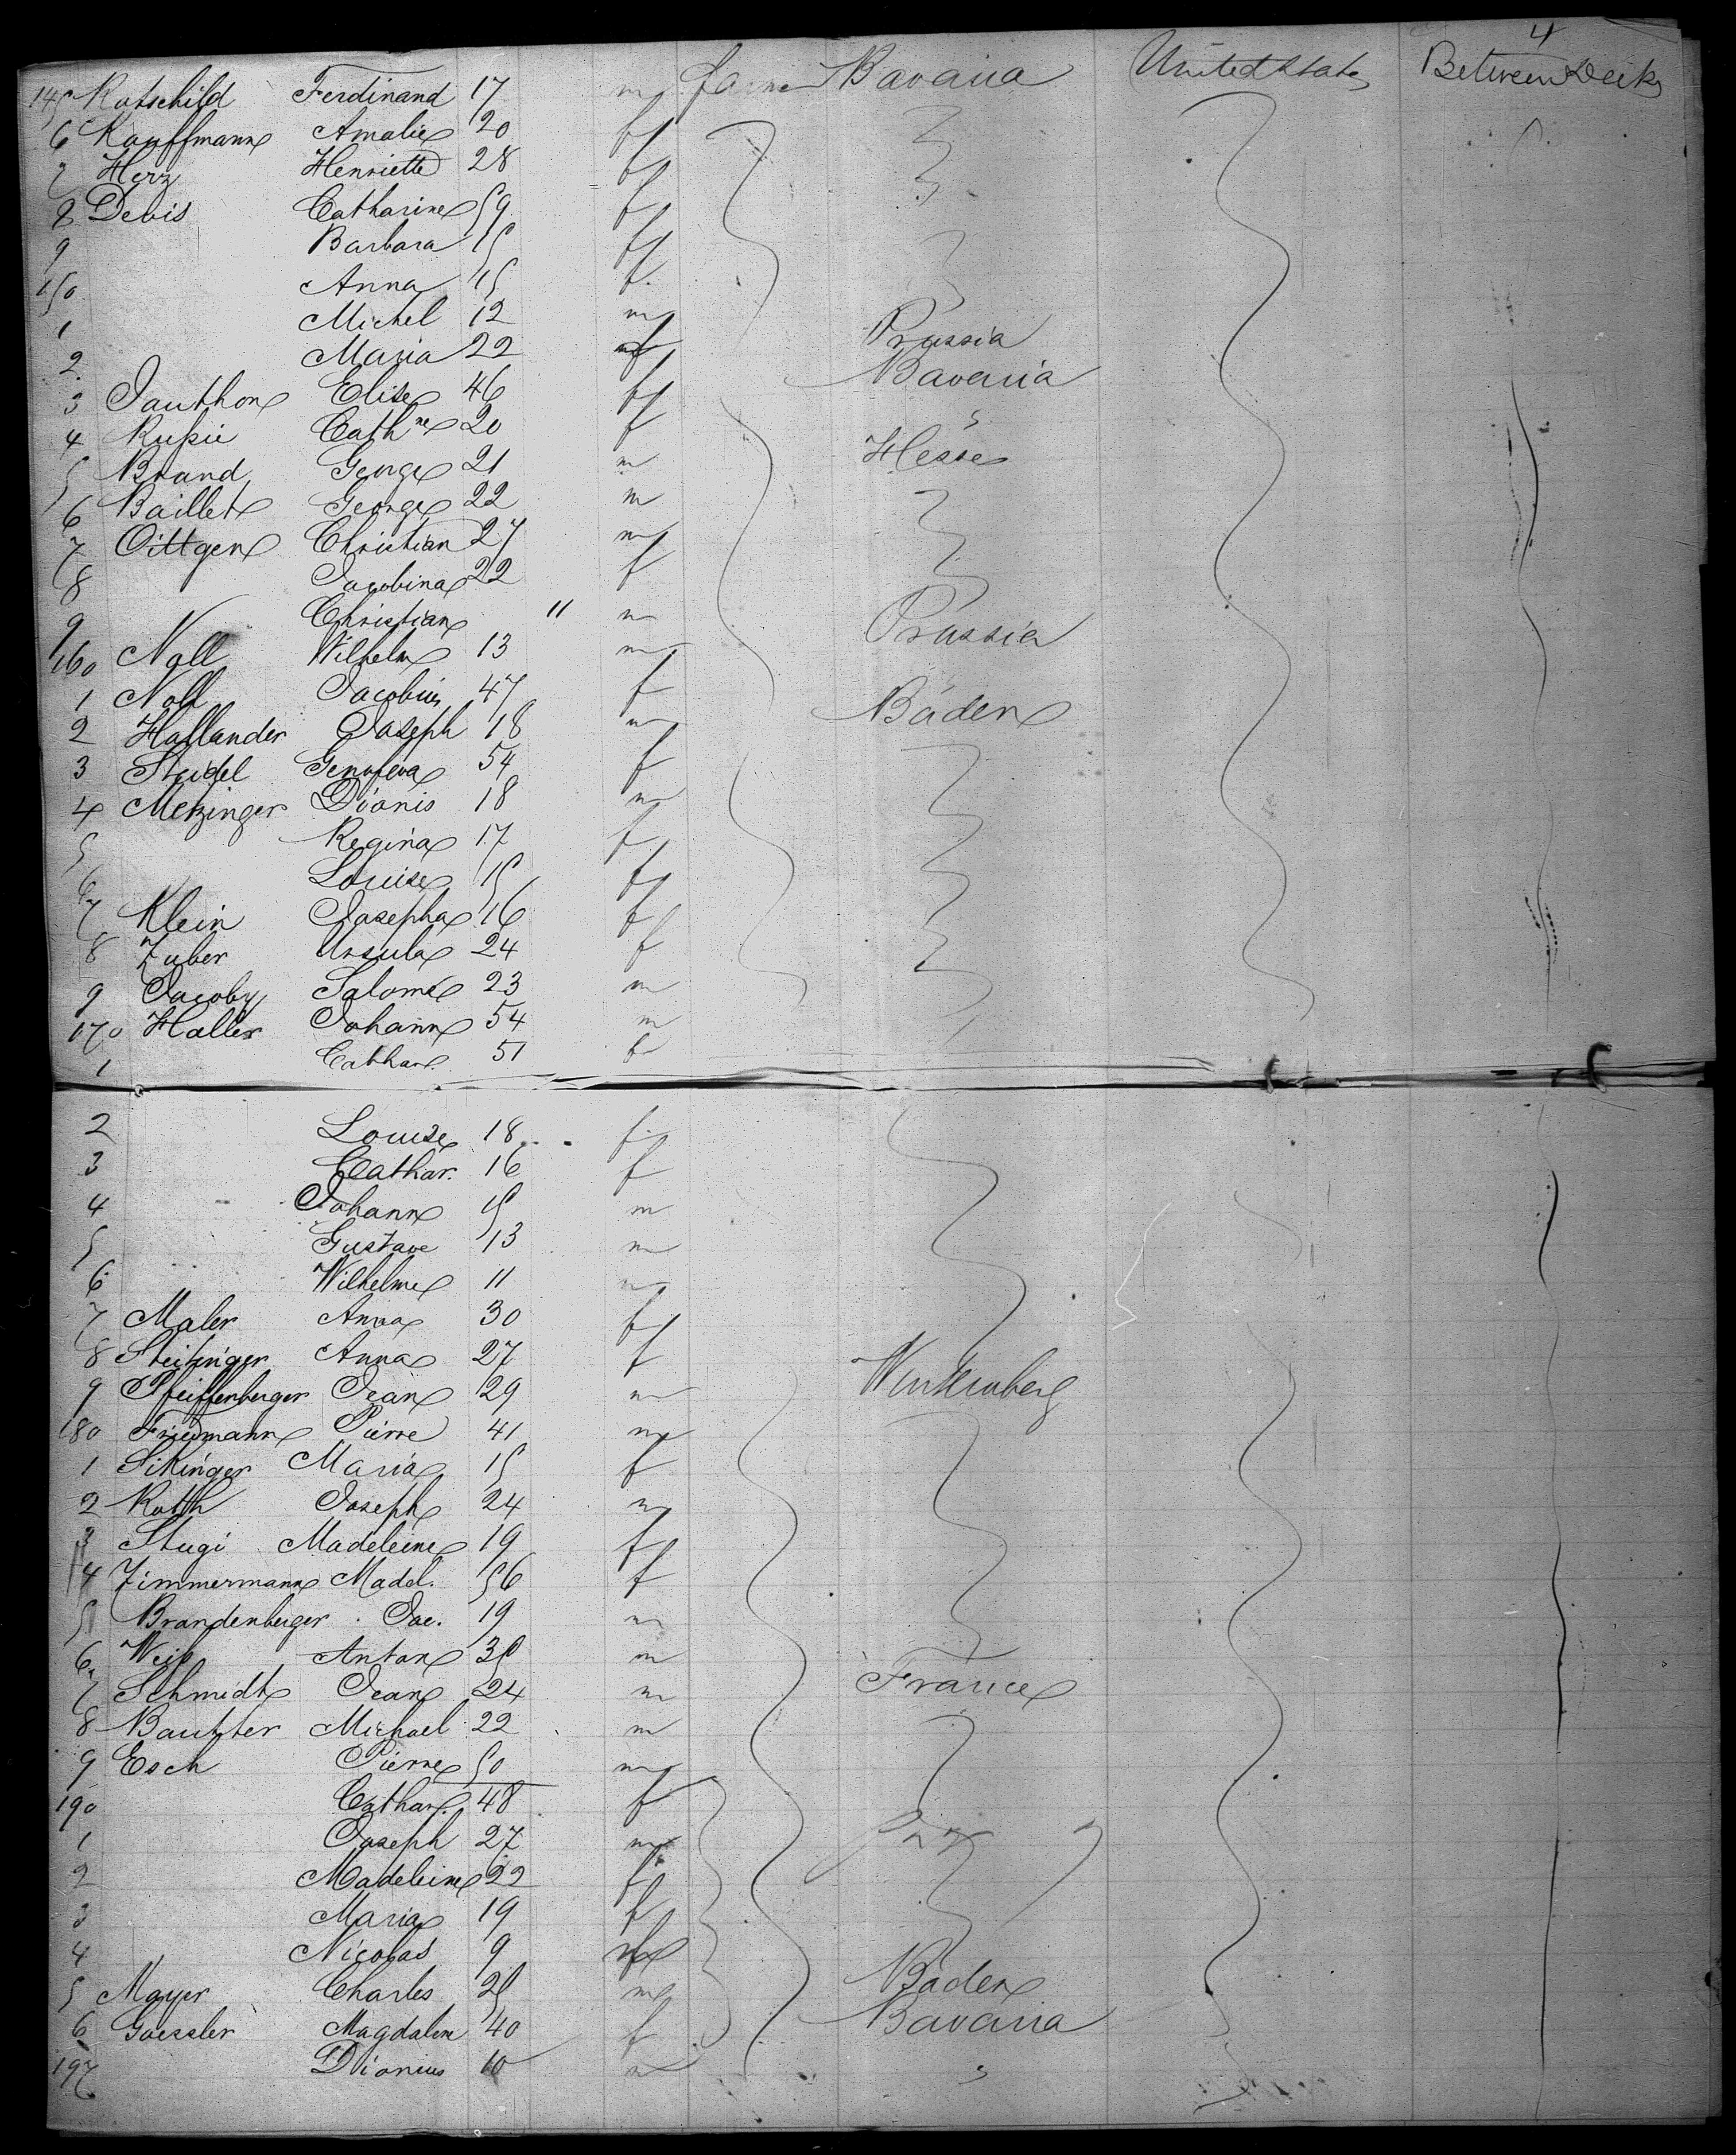 4
145 Rotschild Ferdinand 17 m farmer Bavaria United States Between Decks
6 Kauffmann Amalie 20 f
7 Herz Henriette 28 f
8 Devis Catharine 59 f
9 Barbara 15 f
150 Anna 15 f.
1 Michel 12 m Prussia
2 Maria 22 f Bavaria
3 Jauthon Elise 46 f
4 Rupie Cathne 20 f Hesse
5 Brand George 21 m
6 Baillet George 22 m
7 Oittgen Christian 27 m
8 Jacobina 22 f
9 Christian 11 m Prussia
160 Noll Wilhelm 13 m
1 Noll 47 f Baden
2 Hallander Joseph 18 m
3 Steidel Genofeva 54 f
4 Metzinger Dionis 18 m
5 Regina 17 f
6 Louise 15 f
7 Klein Josepha 16 f
8 Zuber Ursula 24 f
9 Jacoby Salome 23 m
170 Haller Johann 54 m
1 Cathar. 51 f
2 Louise 18 f.
3 Cathar. 16 f
4 Johann 15 m
5 Gustave 13 m
6 Wilhelm 11 m
7 Maler Anna 30 f
8 Steitinger Anna 27 f Wurtemberg
9 Pfeiffenberger Jean 29 m
180 Friedmann Pierre 41 m
1 Sikinger Maria 15 f
2 Roth Joseph 24 m
3 Stugi Madeleine 19 f
4 Zimmermann Madel. 56 f
5 Brandenberger Jac. 19 m
6 Weis Anton 35 m
7 Schmidt Jean 24 m France
8 Bautzter Michael 22 m
9 Esch Pierre 50 m
190 Cathar. 48 f
1 Joseph 27 m
2 Madeleine 22 f
3 Maria 19 f
4 Nicolas 9
5 Mayer Charles 25 m Baden
6 Goessler Magdalen 40 f Bavaria
197 Dionius 10 m